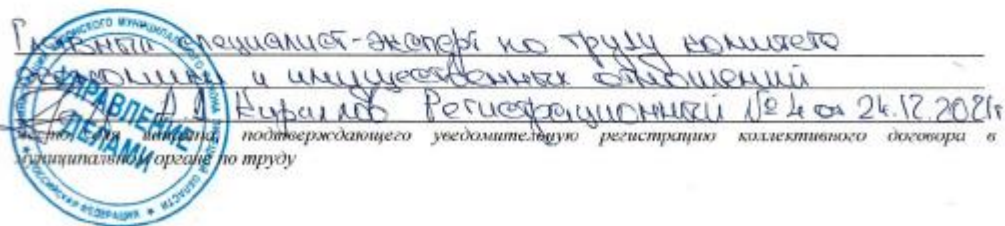 Главный специалист-эксперт по труду комитета
экономики и имущественных отношений
Кириллов Регистрационный № 4 от 24.12.2021г
подтверждающего уведомительную регистрацию коллективного договора в
муниципальном органе по труду
УПРАВЛЕНИЕ
ДЕЛАМИ